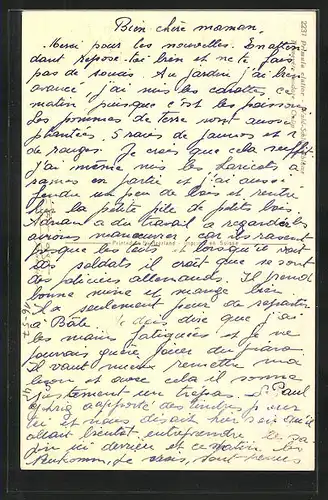 Bien chère maman,
Merci pour les nouvelles. En atten
dant repose-toi bien et ne te fais
pas de soucis. Au jardin j'ai bien
avancé, j'ai mis les carottes, ce
matin puisque c'est les poissons.
Les pommes de terre sont aussi
plantées 5 raies de jaunes et
de rouges. Je crois que cela suffit
j'ai même mis les haricots à
rames en partie et j'ai aussi
fendu un peu de bois et rentré
la petite pile de petits bois.
Adrian a du travail à regarder les
avions manœuvrer car ils passent
presque les toits et lorsqu'il voit
des soldats il croit que ce sont
des policiers allemands. Il prend
bonne mine et mange bien
a seulement peur de repartir
à Bâle. Je dois dire que j'ai
les mains fatiguées et je ne
pourrais guère jouer du piano
il vaut mieux remettre ma
leçon et avec cela il sonne
justement un trépas. Paul
a apporté des
lui et nous disait hier soir qu'il
allait bientôt entreprendre
ici derrière et ce matin les
je crois, sont venus
2237 Primula elatior
Printed in Switzerland - Imprimé en Suisse